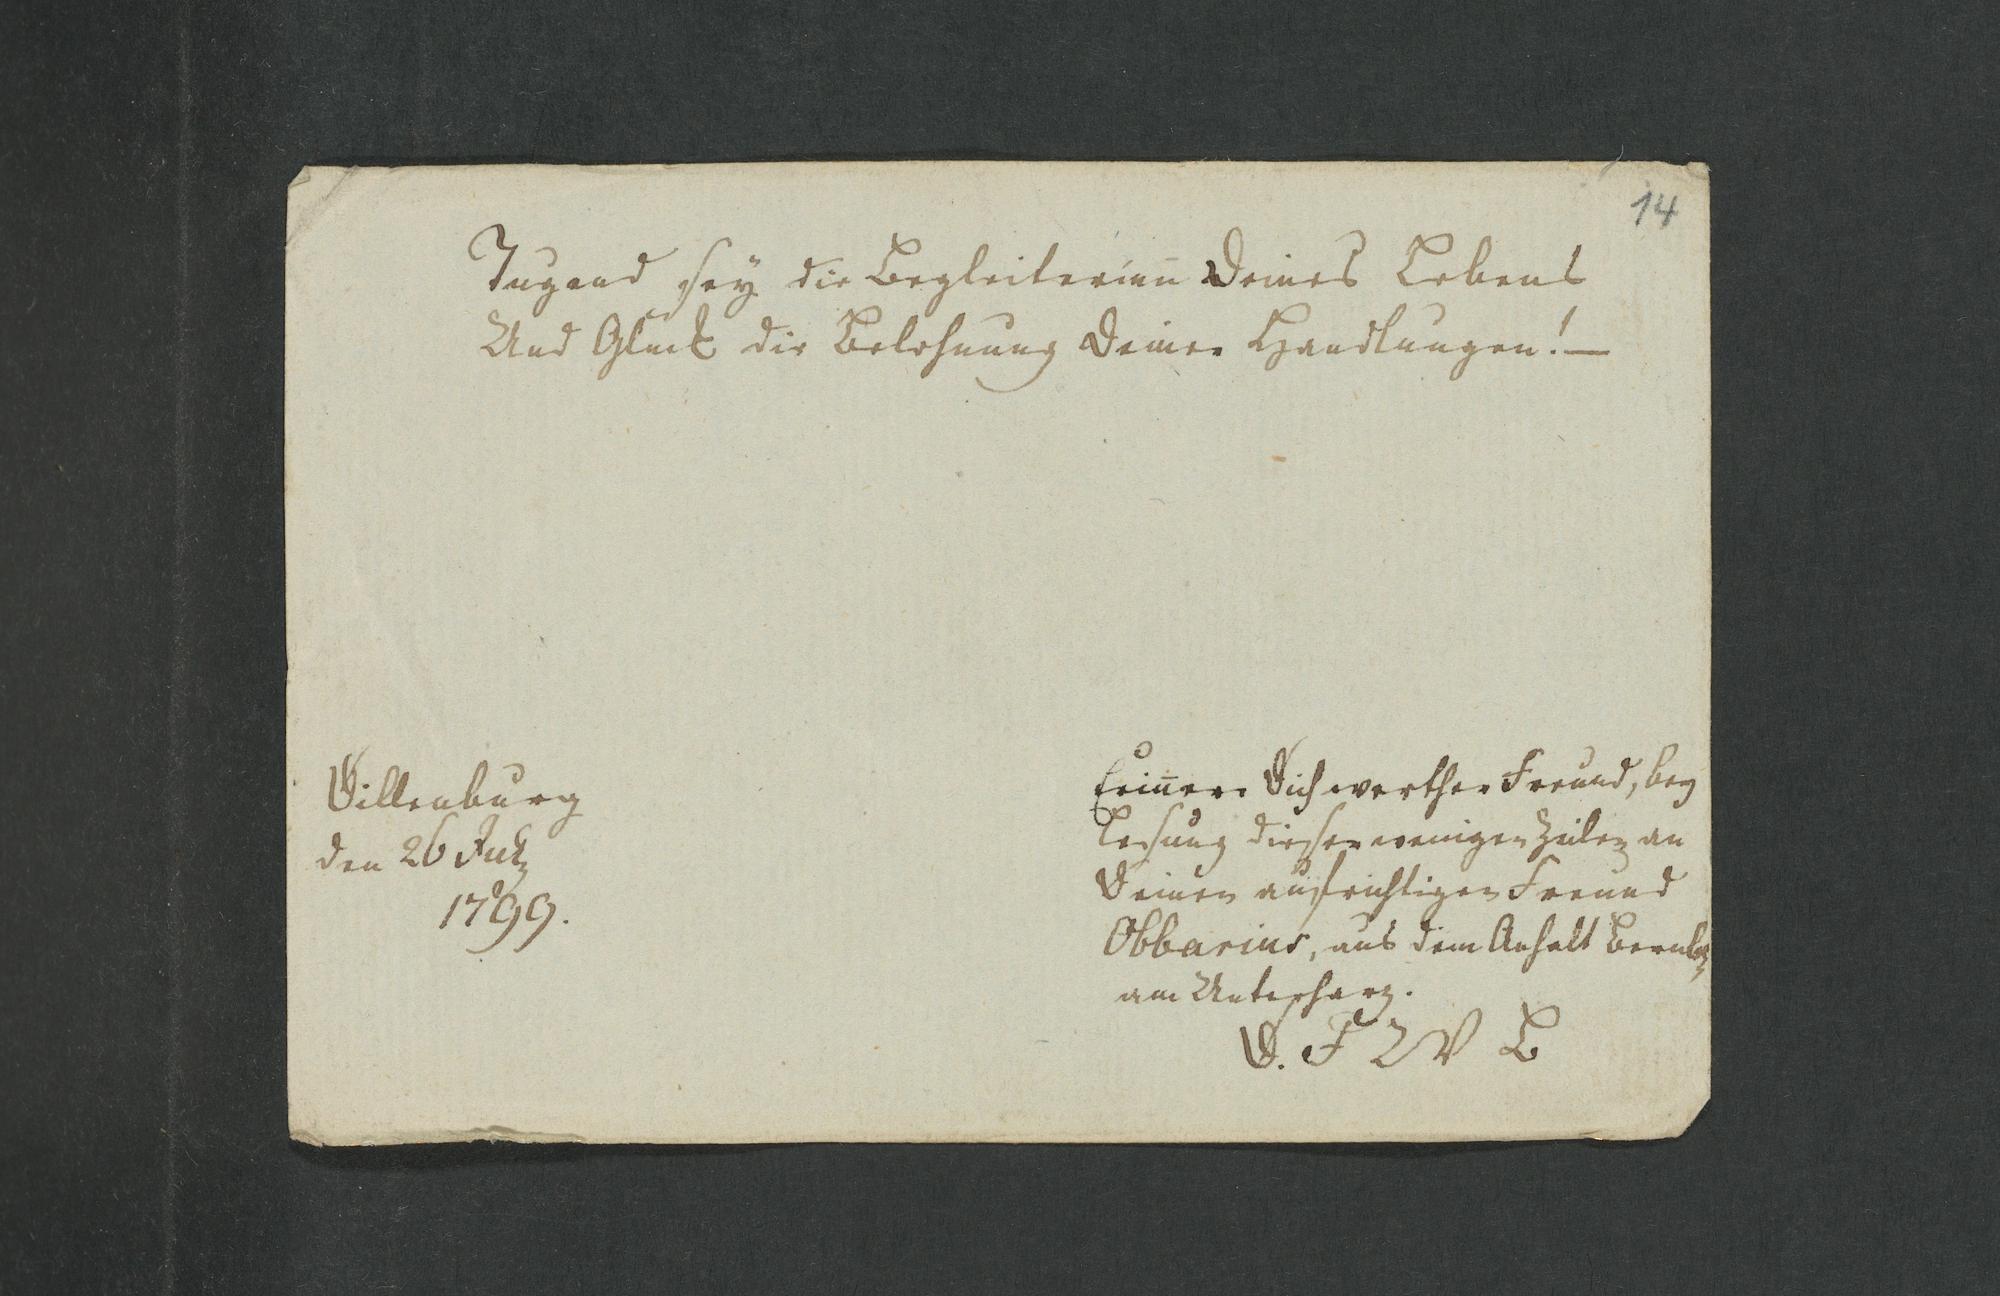 14
Tugend sey die Begleiterinn Deines Lebens
Und Glück die Belohnung Deiner Handlungen! —
Dillenburg
den 26 July
1799.
Erin̄ere Dich werther Freund, bey
Lesung dieser wenigen Zeilen an
Deinen aufrichtigen Freund
Obbarius, aus dem Anhalt Bernb
am Unterharz.
D. F